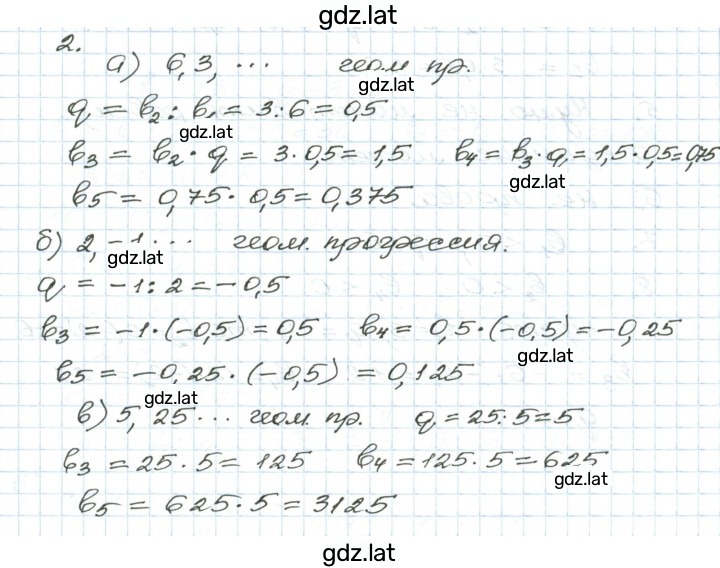 gdz.lat
2.
а) 6, 3, ... геом пр.
gdz.lat
q = b₂ : b₁ = 3 : 6 = 0,5
gdz.lat
b₃ = b₂ · q = 3 · 0,5 = 1,5 b₄ = b₃ · q = 1,5 · 0,5 = 0,75
gdz.lat
b₅ = 0,75 · 0,5 = 0,375
б) 2, -1 ... геом. прогрессия.
gdz.lat
q = -1 : 2 = -0,5
b₃ = -1 · (-0,5) = 0,5 b₄ = 0,5 · (-0,5) = -0,25
gdz.lat
b₅ = -0,25 · (-0,5) = 0,125
gdz.lat
в) 5, 25 ... геом. пр. q = 25 : 5 = 5
b₃ = 25 · 5 = 125 b₄ = 125 · 5 = 625
gdz.lat
b₅ = 625 · 5 = 3125
gdz.lat